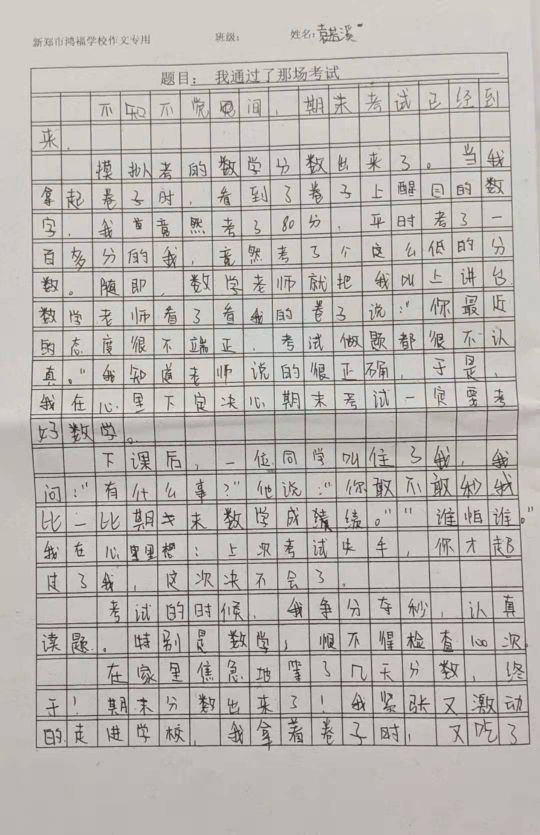 新郑市鸿福学校作文专用 班级: 姓名:袁若溪
题目: 我通过了那场考试
不知不觉间,期末考试已经到
来.
模拟考的数学分数出来了。当我
拿起卷子时,看到了卷子上醒目的数
字,我竟然考了80分,平时考了一
百多分的我,竟然考了个这么低的分
数。随即,数学老师就把我叫上讲台.
数学老师看了看我的卷子说:"你最近
的态度很不端正,考试做题都很不认
真。"我知道老师说的很正确,于是,
我在心里下定决心期末考试一定要考
好数学。
下课后,一位同学叫住了我,我
问:"有什么事?"他说:"你敢不敢和我
比一比期末数学成绩。""谁怕谁。"
我在心里想:上次考试失手,你才超
过了我,这次决不会了.
考试的时候,我争分夺秒,认真
读题。特别是数学,恨不得检查100次.
在家里焦急地等了几天分数,终
于!期末分数出来了!我紧张又激动
的走进学校,我拿着卷子时,又吃了